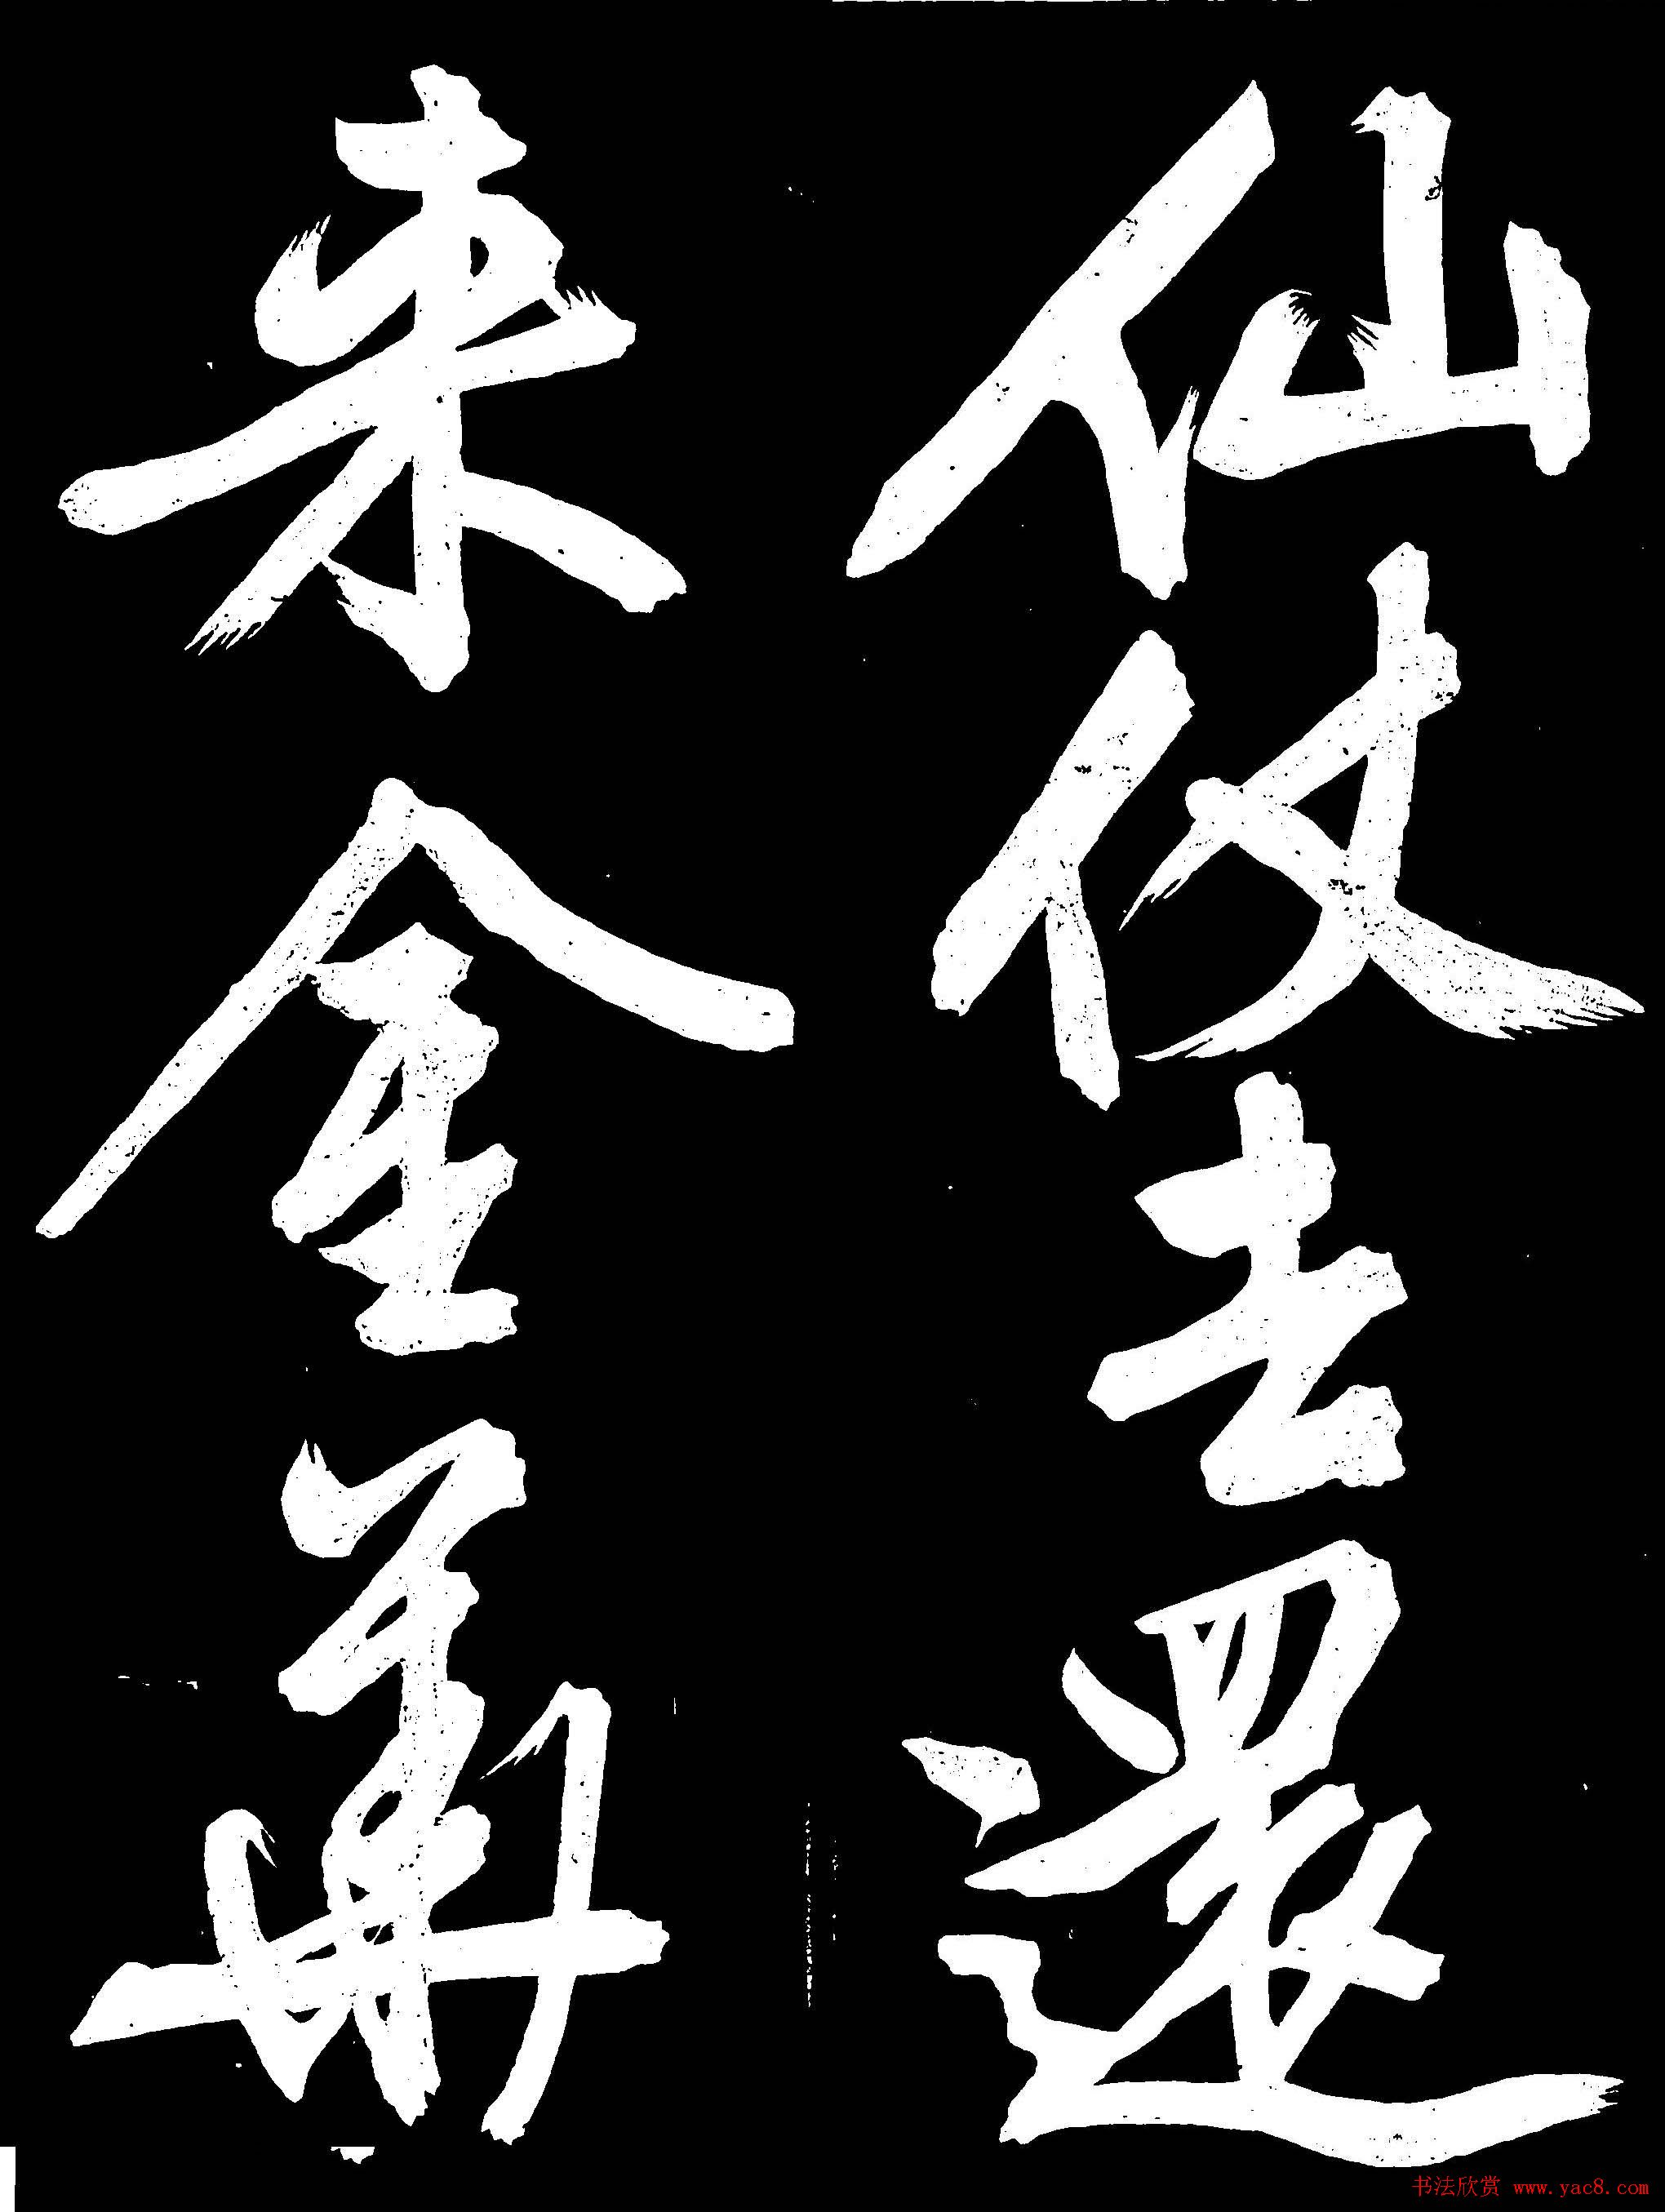 仙仗去還
来金華
书法欣赏 www.yac8.com